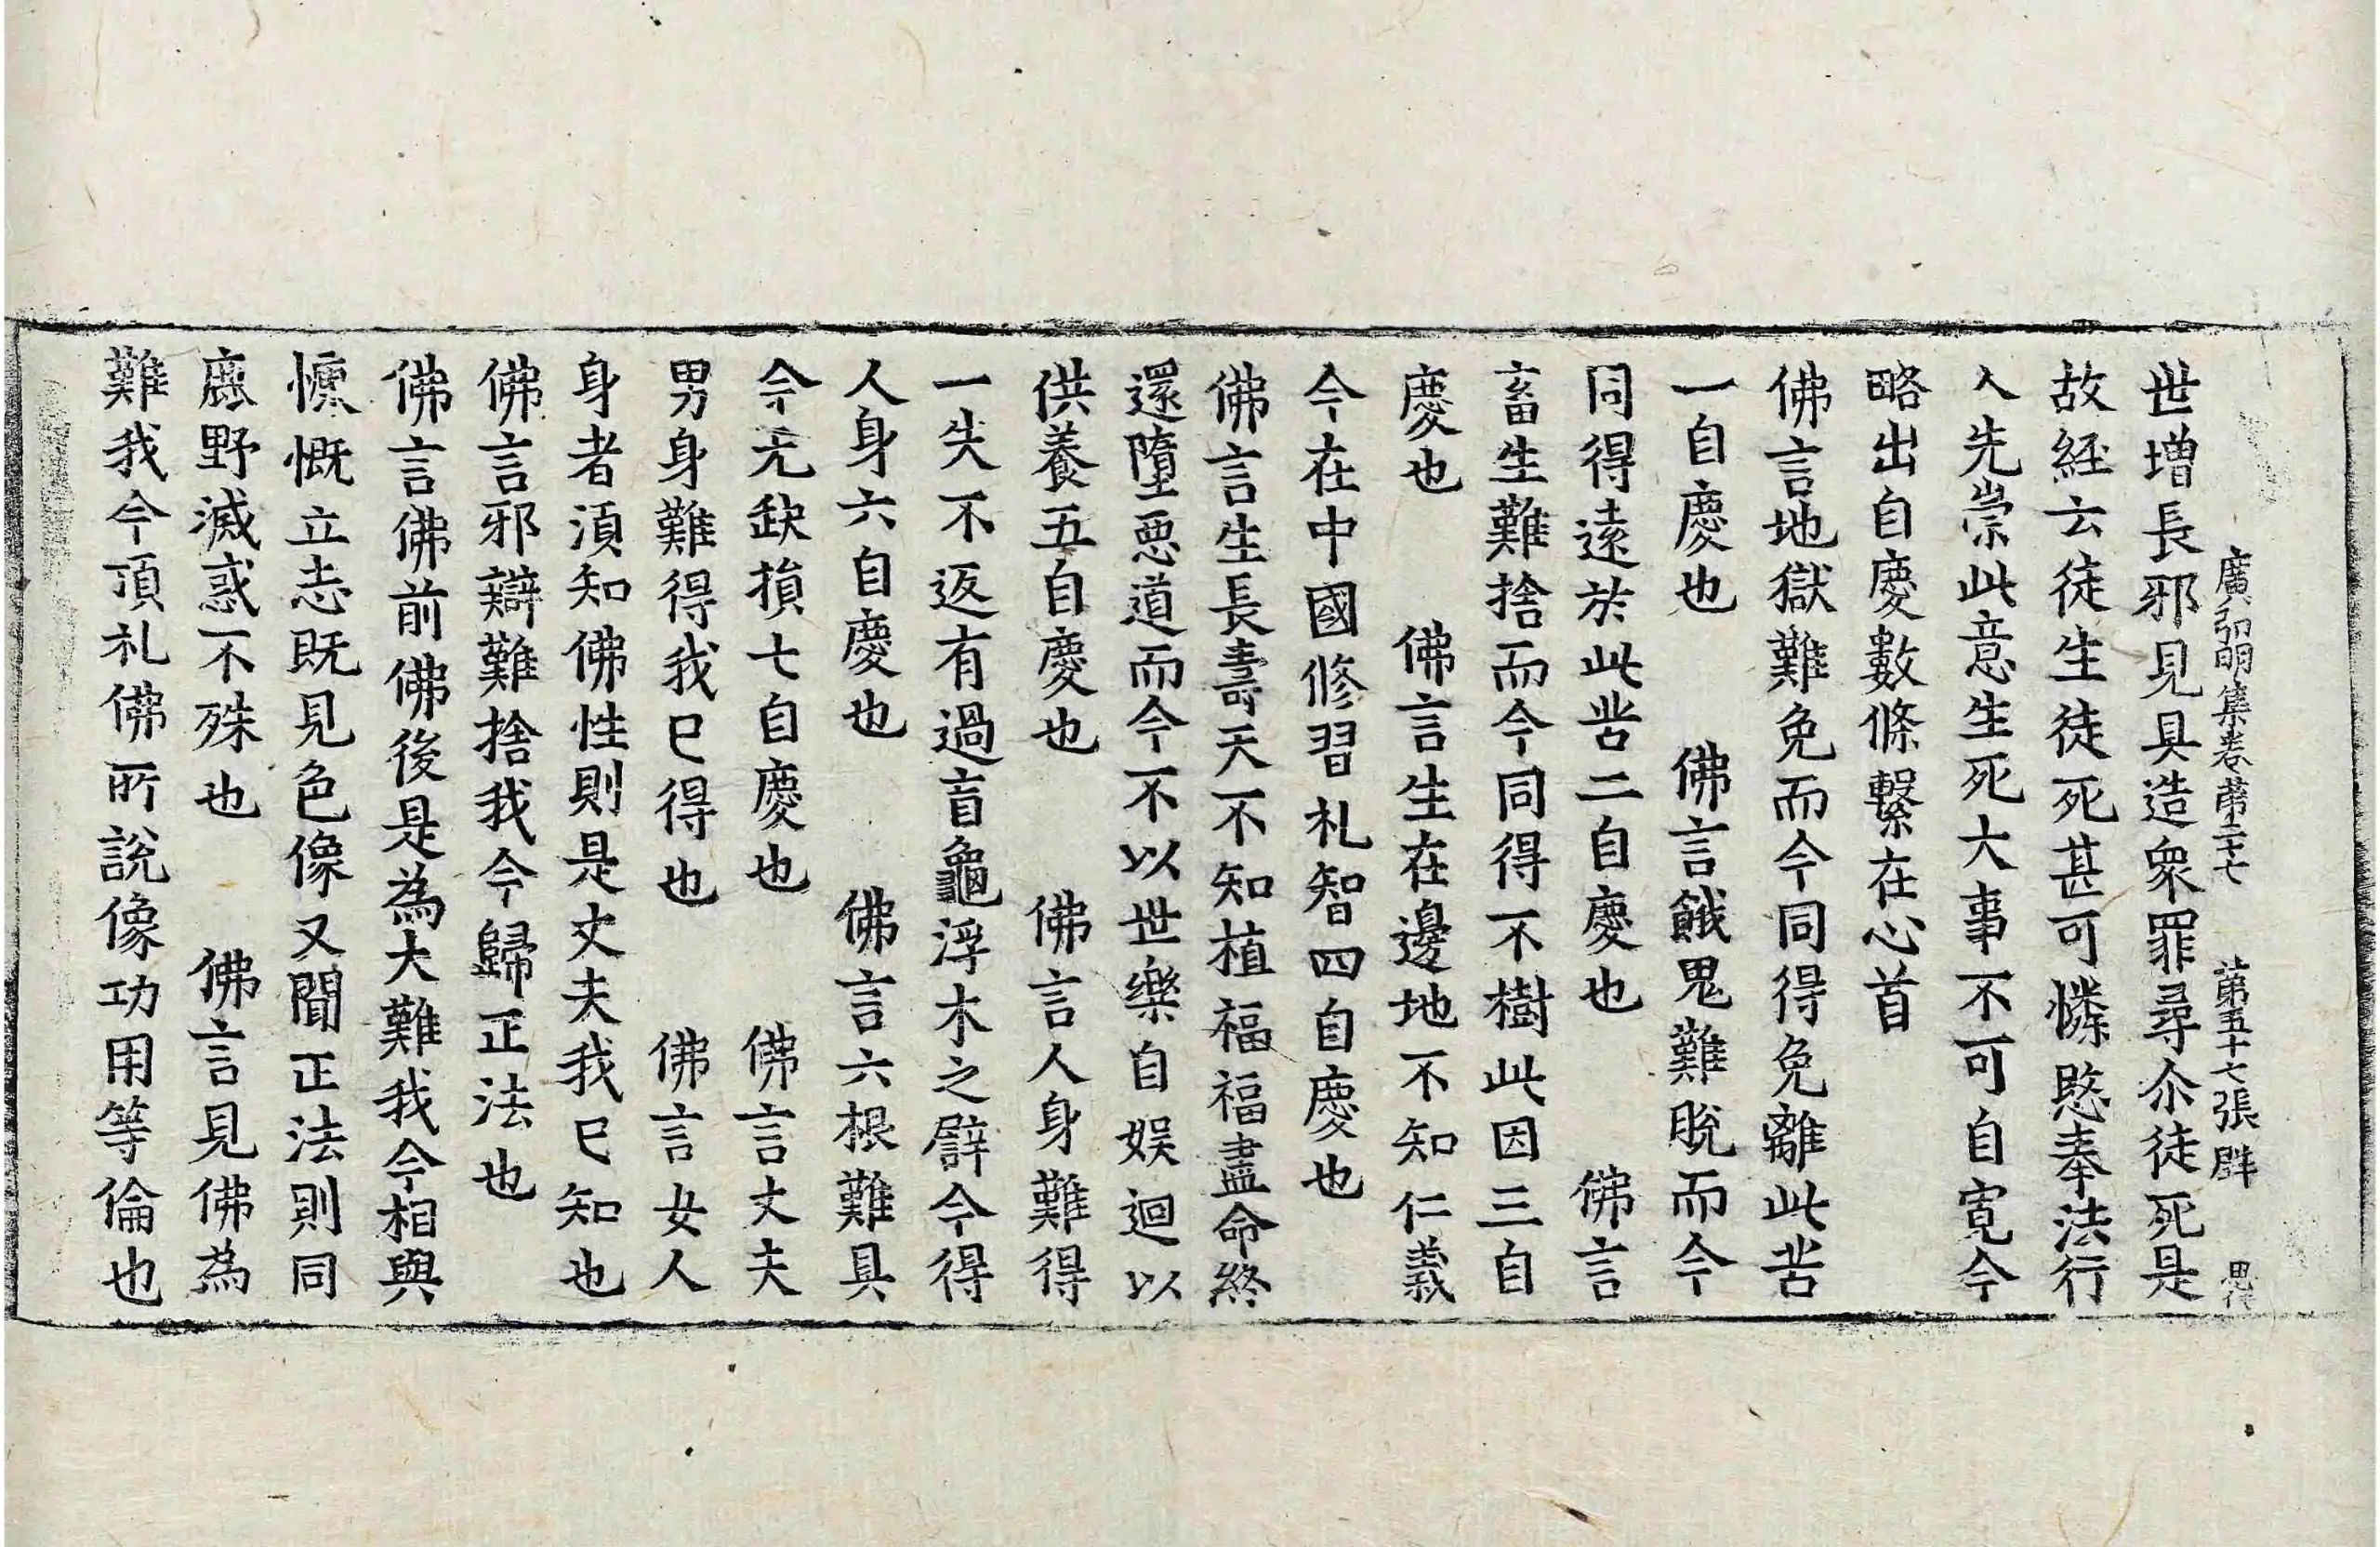 廣弘明集卷第二十七　第五十七張　群
世增長邪見具造衆罪尋尒徒死是
故経云徒生徒死甚可憐愍奉法行
人先崇此意生死大事不可自寬今
略出自慶數條繫在心首
佛言地獄難免而今同得免離此苦
一自慶也　佛言餓鬼難脫而今
同得遠於此苦二自慶也　佛言
畜生難捨而今同得不樹此因三自
慶也　佛言生在邊地不知仁義
今在中國修習礼智四自慶也
佛言生長壽天不知植福福盡命終
還墮惡道而今不以世樂自娛迴以
供養五自慶也　佛言人身難得
一失不返有過盲龜浮木之譬今得
人身六自慶也　佛言六根難具
今无缺損七自慶也　佛言丈夫
男身難得我已得也　佛言女人
身者須知佛性則是丈夫我已知也
佛言邪辯難捨我今歸正法也
佛言佛前佛後是為大難我今相與
慷慨立志既見色像又聞正法則同
鹿野滅惑不殊也　佛言見佛為
難我今頂礼佛所說像功用等倫也